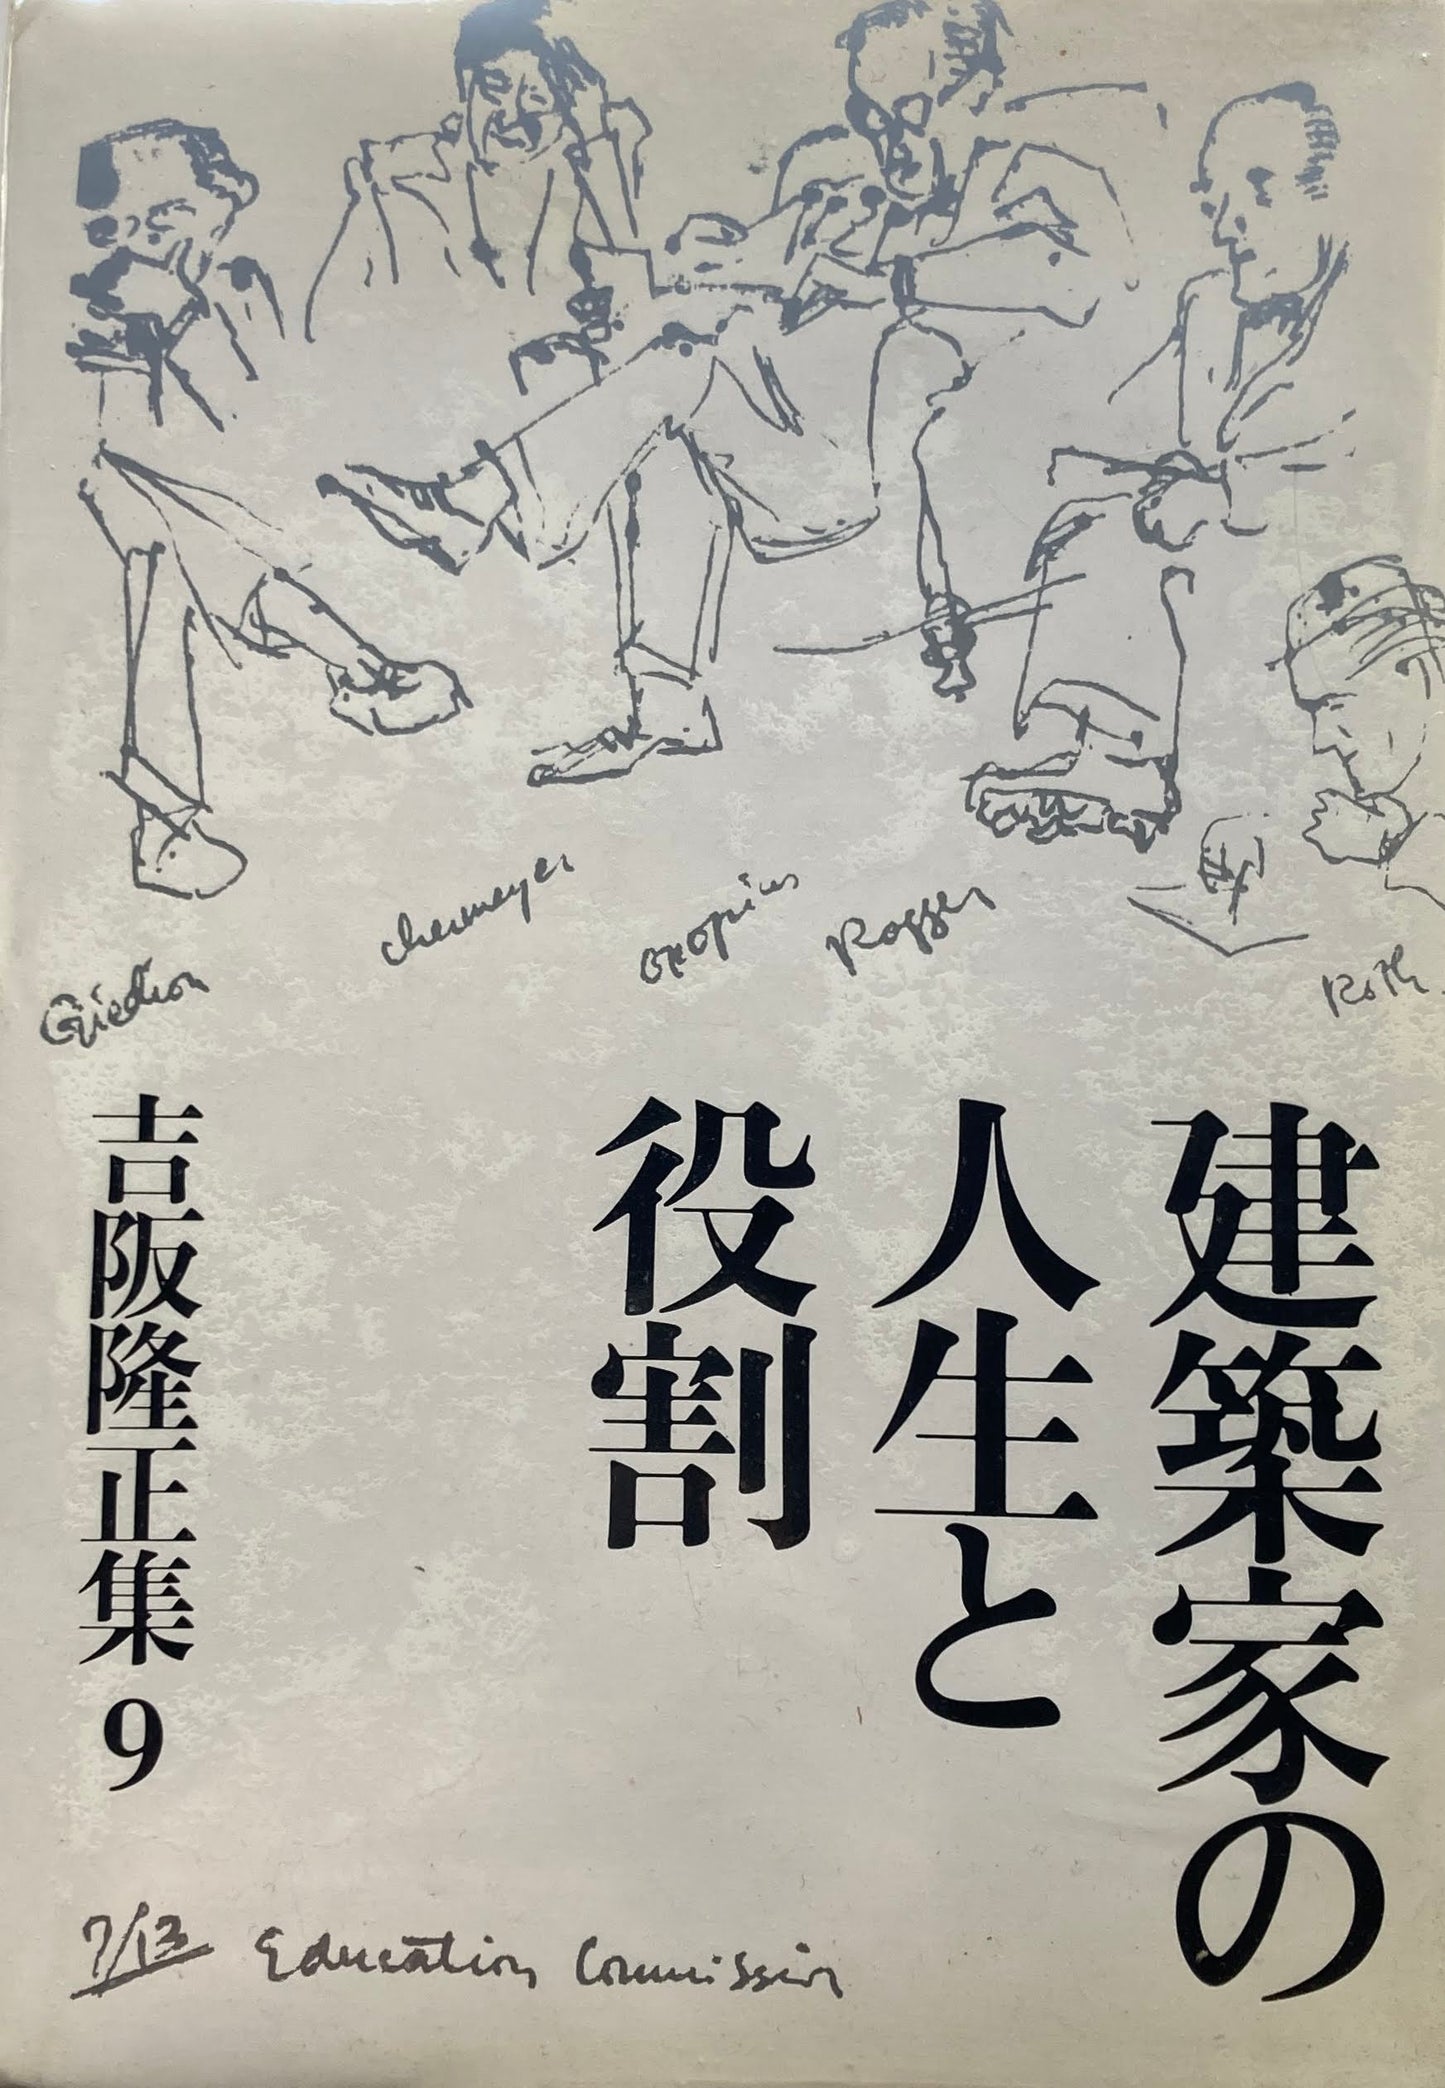 Giedion
chermeyer
Gropius
Rogger
Roth
建築家の
人生と
役割
吉阪隆正集 9
7/13 Education Commission